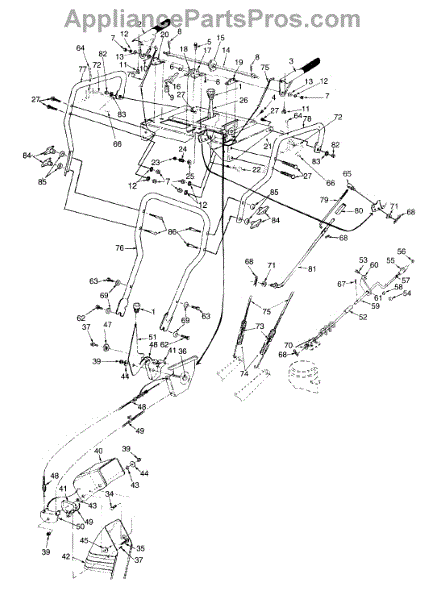 AppliancePartsPros.com
64 7 12 13 6 15 5 17 14 8 3
77 72 82 75 20 18 19 13 12
27 11 10 6 16 9 1 4 11 7
83 26 27 64 78 72
66 21 82
84 23 24 22 83
85 12 7 25 27 66
12 85 65
86 84 79 80 71
76 68
63 68 71 81 53 60 55 56
69 67 58 54
62 1 69 63 75 61 59
37 47 51 48 62 73 52
39 41 36 70
44 74 68
48
49
40 39
48 41 44
43 34 43
50 49
39 45 35
42 37